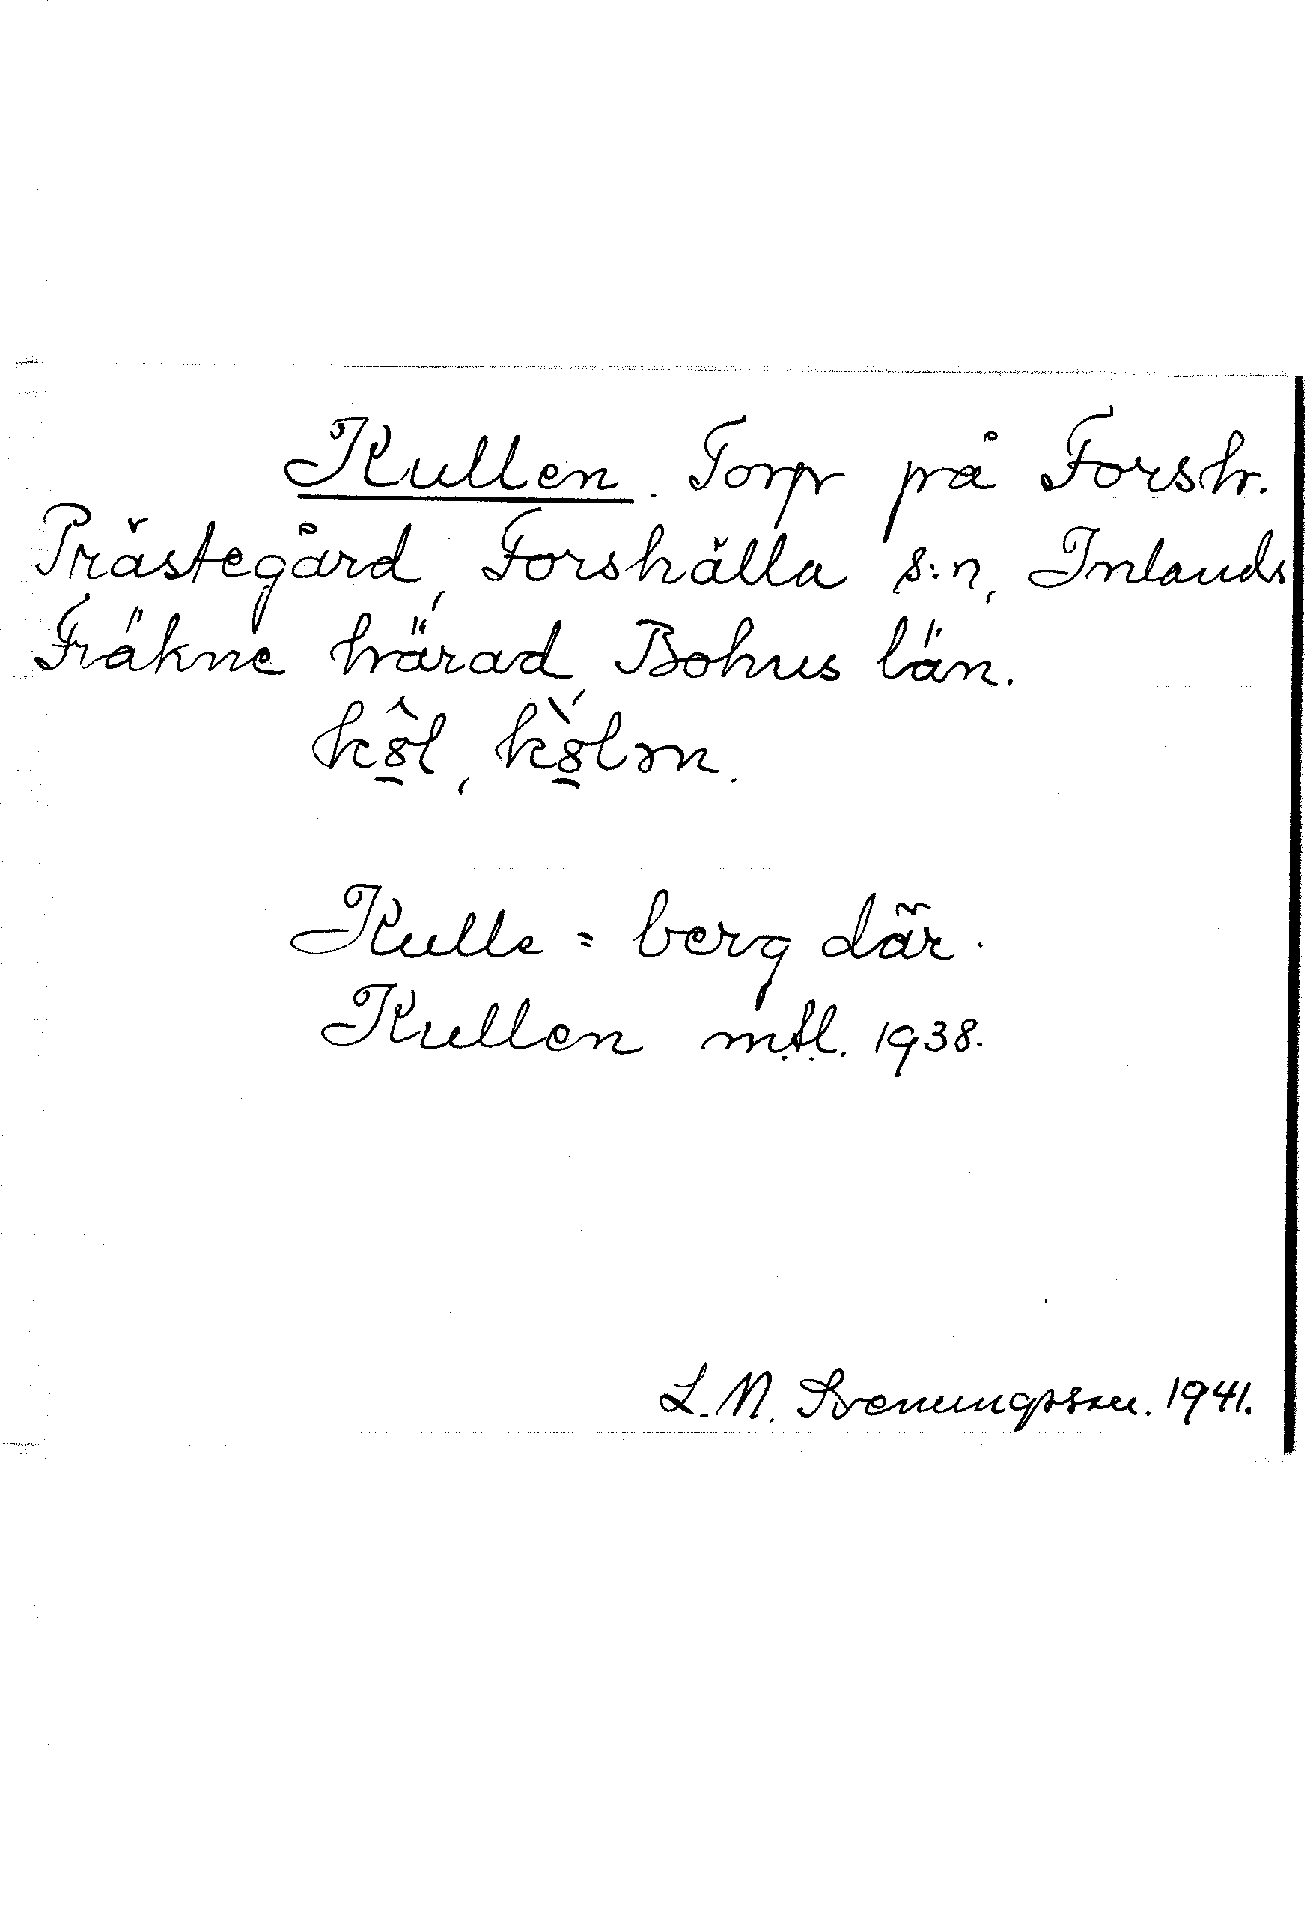 Kullen. Torp på Forsh.
Prästegård, Forshälla s:n, Inlands
Fräkne härad, Bohus län.
Kulle = berg där.
Kullen mtl. 1938.
L. N. Svenungsson. 1941.